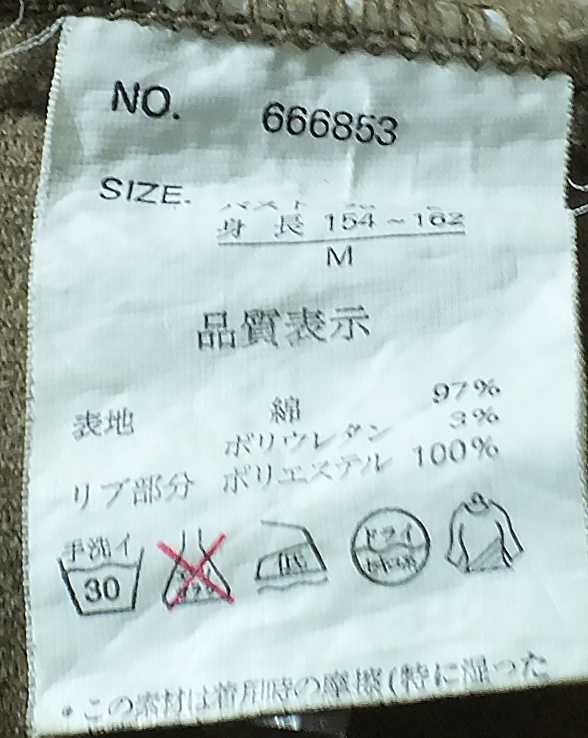 NO. 666853
SIZE.
身長 154~162
M
品質表示
表地 綿 97%
ポリウレタン 3%
リブ部分 ポリエステル 100%
手洗イ
30
ドライ
・この素材は着用時の摩擦(特に湿った